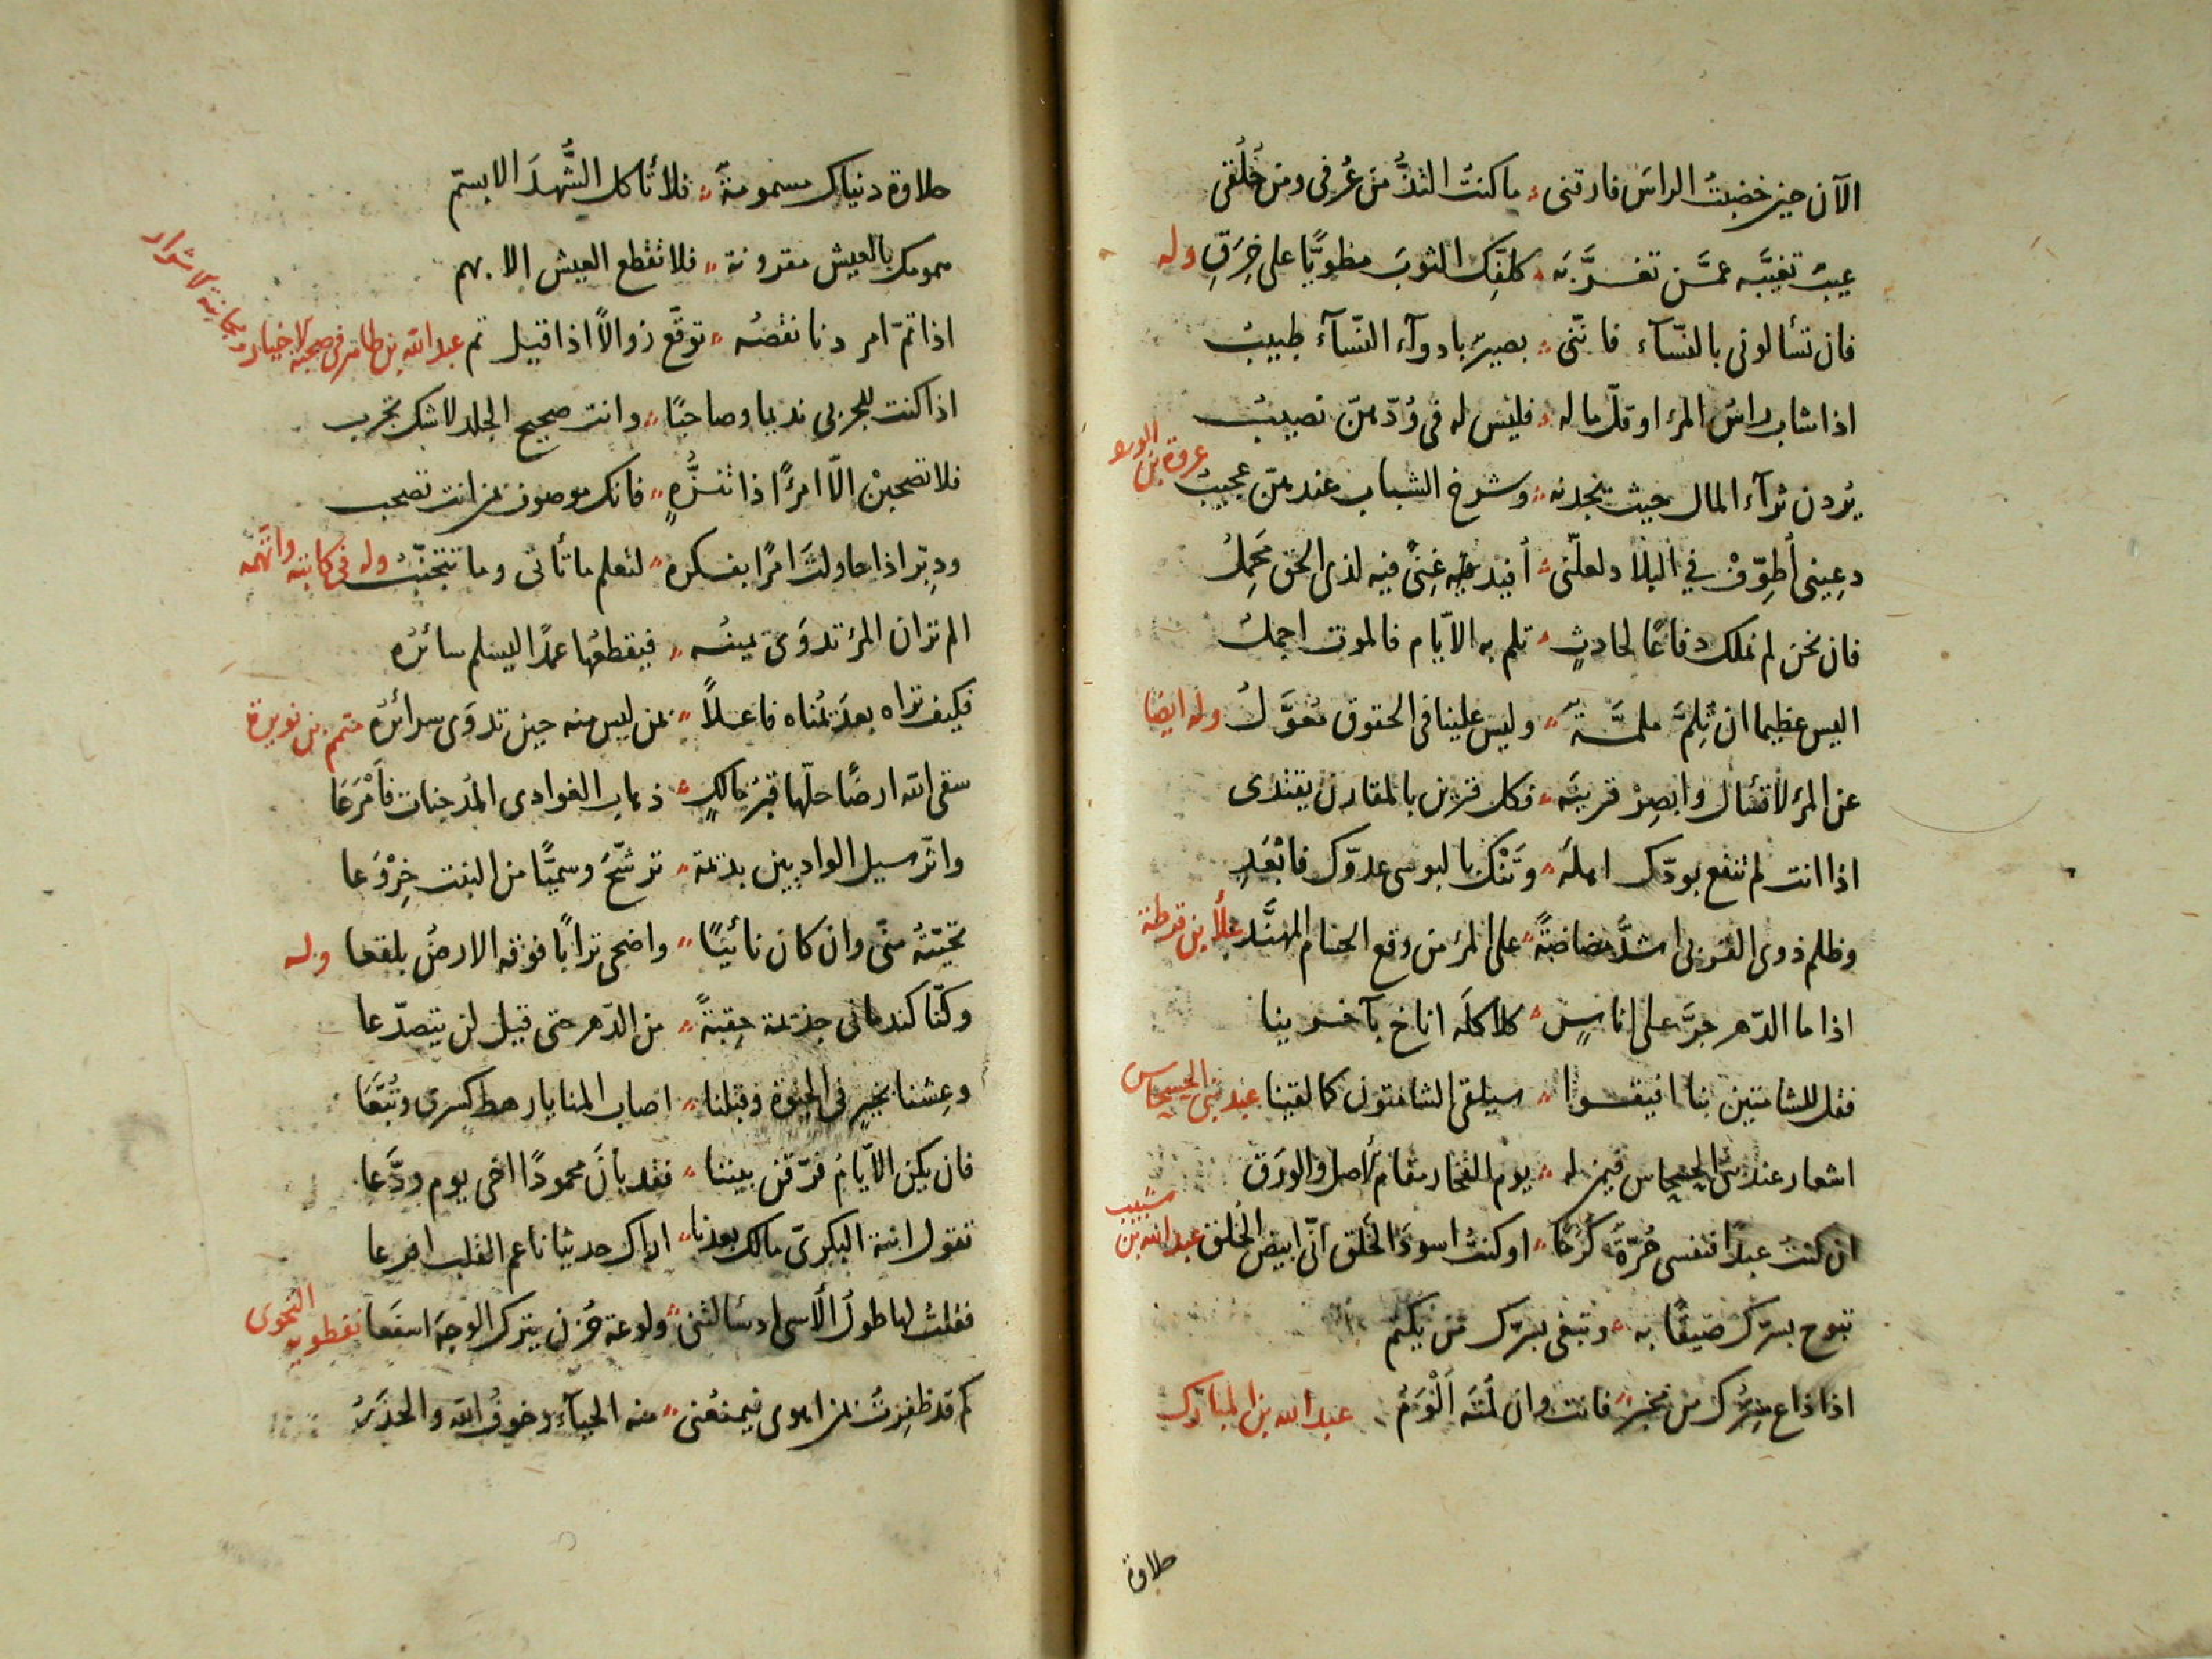 الآن حين خضبتُ الراسَ فارقنى ؛ ما كنتُ التذُّ من عُرفى ومن خُلُقى
عيبٌ تغيّبه عمَّن تغرّ به ؛ كلفِّك الثوبَ مطويًّا على خِرَقِ وله
فان تسألونى بالنّسآء فانّنى ؛ بصيرٌ بادوآء النّسآء طبيبُ
اذا شاب راسُ المرء او قلّ ماله ؛ فليس له فى وُدّهنّ نصيبُ
يُردن ثرآء المال حيث يجدنه ؛ وشرخ الشباب عندهنّ عجيبُ عروة بن الورد
دعِينى أطوِّفْ في البلاد لعلّنى ؛ أفيد غِنًى فيه لذى الحق محمِلُ
فان نحن لم نملك دفاعًا لحادثٍ ؛ تلم به الايّام فالموت اجملُ
اليس عظيما ان تُلِمَّ ملمّةٌ ؛ وليس علينا فى الحقوق مُعوَّلُ وله ايضًا
عن المرء لا تسأل وابصِرْ قرينَه ؛ فكل قرين بالمقارن يقتدى
اذا انت لم تنفع بودّك اهلَه ؛ وتَنْكِ بالبوسى عدوّك فابْعَدِ
وظلم ذوى القربى اشدُّ مضاضةً ؛ على المرء من وقع الحسام المهنَّد علآ بن قرطة
اذا ما الدّهر جرَّ على اناسٍ ؛ كلاكلَه اناخ بآخرينا
فقل للشامتين بنا افيقوا ؛ سيلقى الشامتون كما لقينا عبد بنى الحسحاس
اشعار عبد بنى الحسحاس قمن له ؛ يوم الفخار مقام الأصل والورَق
ان كنتُ عبدًا فنفسى حُرّةٌ كرَمًا ؛ او كنتُ اسودَ الخَلق انّى ابيض الخُلق عبد الله بن شبيب
تبوح بسرّك ضيقًا به ؛ وتبغى لسرّك من يكتم
اذا ذاع سِرُّك من مخبرٍ ؛ فانت وان لُمتَه اَلْوَمُ عبد الله بن المبارك
حلاوة
حلاوة دنياك مسمومةٌ ؛ فلا تأكل الشُّهدَ الا بسمّ
همومك بالعيش مقرونة ؛ فلا تقطع العيش الا بهم
اذا تمّ امر دنا نقصُه ؛ توقّع زوالاً اذا قيل تم عبد الله بن طاهر فى صحبة الاخيار ومجانبة الاشرار
اذا كنت للجربى نديما وصاحبًا ؛ وانت صحيح الجلد لا شك تجرب
فلا تصحبنْ الّا امرءًا ذا تنزُّهٍ ؛ فانك موصوف بمن انت تصحب
ودبِّر اذا حاولتَ امرًا بفكره ؛ لتعلم ما تأتى وما تتجنّبُ وله فى كاتبه واتّهمه
الم تر ان المرء تدوَى يمينُه ؛ فيقطعُها عمدًا ليسلم سائرُه
فكيف تراه بعد يُمناه فاعلاً ؛ بمن ليس منه حين تدوَى سرائرُه متمم بن نويرة
سقى الله ارضًا حلّها قبرُ مالكٍ ؛ ذهاب الغوادى المُدجنات فأمْرَعَا
واثر سيل الواديين بديمة ؛ ترشّح وسميًّا من النبت خِرْوَعا
تحيّتُه منّى وان كان نائيًا ؛ واضحى ترابًا فوقه الارضُ بلقعا وله
وكنّا كندمانى جذيمة حِقبةً ؛ من الدّهر حتى قيل لن يتصدّعا
وعِشنا بخيرٍ فى الحيوة وقبلنا ؛ اصاب المنايا رهط كسرى وتُبَّعَا
فان يكن الايّامُ فرّقن بيننا ؛ فقد بانَ محمودًا اخى يوم ودَّعا
تقول ابنة البكرىّ مالك بعدنا ؛ اراك حديثا ناعم القلب افرعا
فقلتُ لها طولُ الأسى اذ سالتنى ؛ ولوعة حُزن يترك الوجهَ اسفَعا نفطويه النحوى
كم قد ظفِرتُ بمن اهوى فيمنعُنى ؛ منه الحيآء وخوفُ الله والحذَرُ